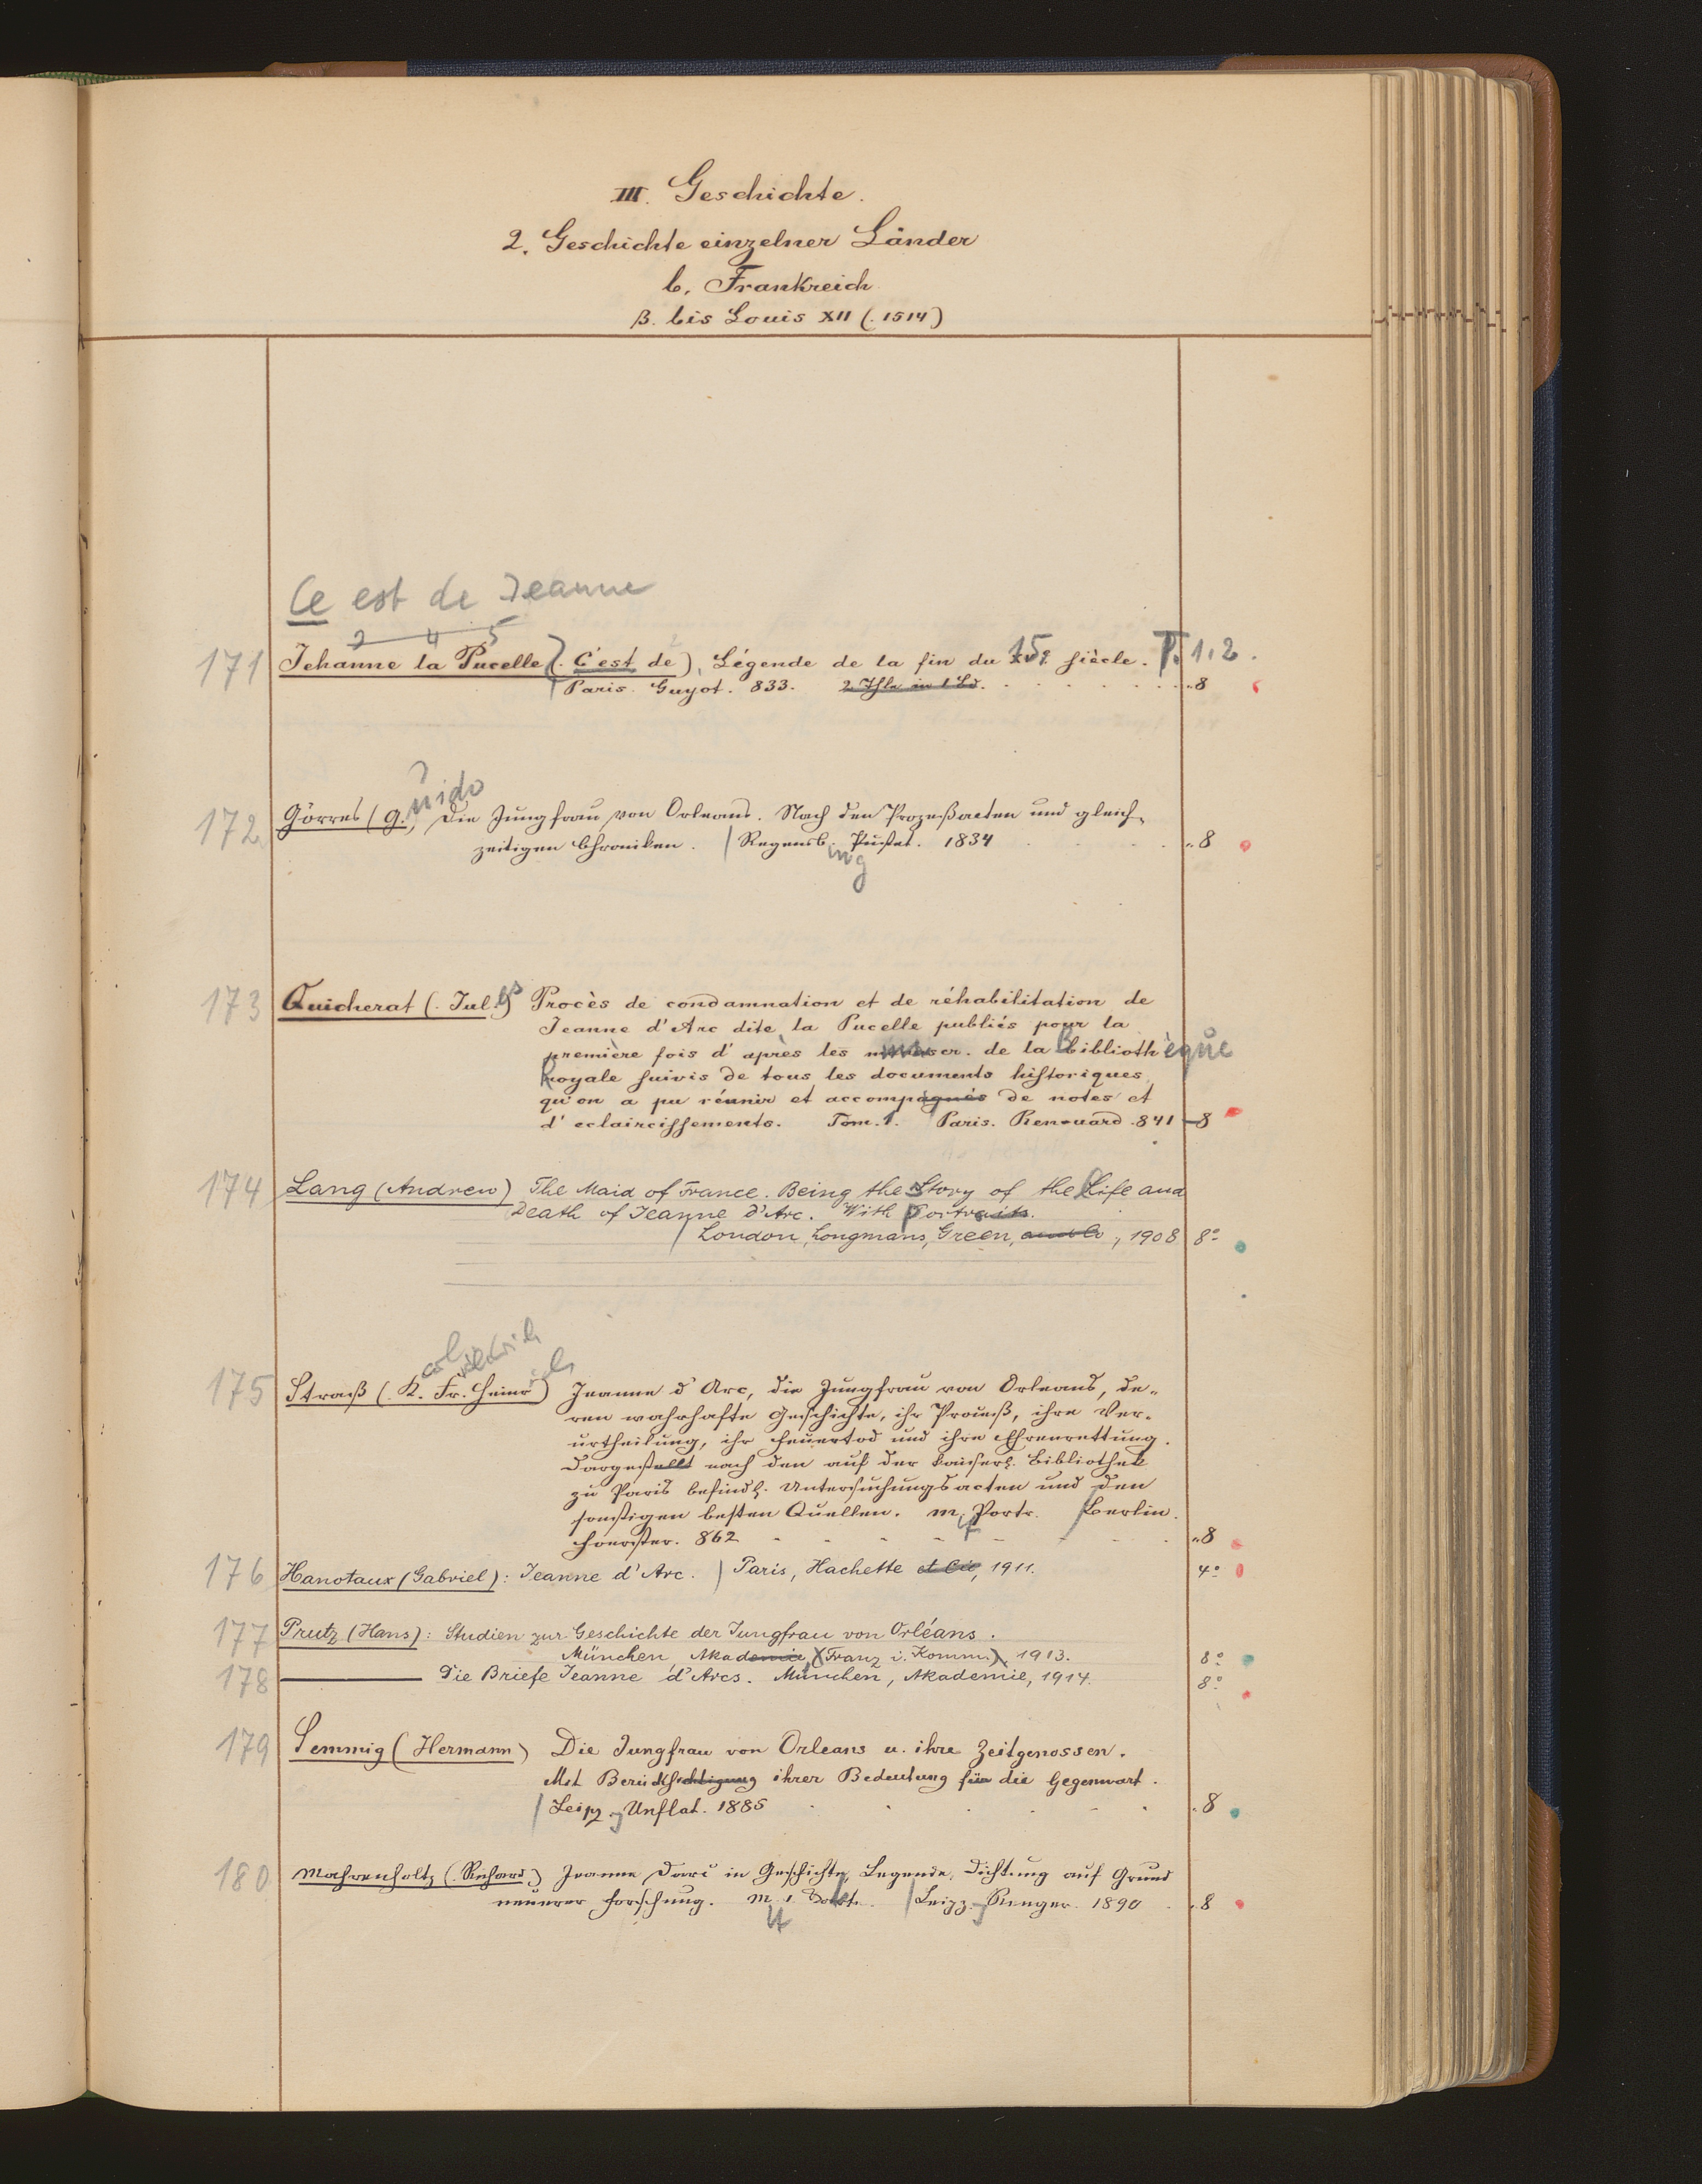 III. Geschichte.
2. Geschichte einzelner Länder
b. Frankreich
β. bis Louis XII (. 1514)
Ce est de Jeanne
2 4 5
171 Jehanne la Pucelle (. C'est de), Légende de la fin du 15e siècle. T. 1.2.
Paris. Guyot. 833. 2 Thle in 1 Bd. 8
uido
172 Görres (G., Die Jungfrau von Orleans. Nach den Prozeßacten und gleich-
zeitigen Chroniken. | Regensb. Pustet. 1834 8
ing
173 Quicherat (. Jul.es) Procès de condamnation et de réhabilitation de
Jeanne d'Arc dite la Pucelle publiés pour la
première fois d'après les manuscr. de la Bibliothèque
Royale suivis de tous les documents historiques
qu'on a pu réunir et accompagnés de notes et
d'eclaircissements. Tom. 1. Paris. Renouard. 841 8
174 Lang (Andrew) The Maid of France. Being the Story of the Life and
Death of Jeanne d'Arc. With Portraits.
| London, Longmans, Green, and Co, 1908 8°
arl iedrich
175 Strass (. K. Fr. Heinrich) Jeanne d'Arc, die Jungfrau von Orleans, de-
ren wahrhafte Geschichte, ihr Prozeß, ihre Ver-
urtheilung, ihr Feuertod und ihre Ehrenrettung.
Dargestellt nach den auf der kaiserl. Bibliothek
zu Paris befindl. Untersuchungsacten und den
sonstigen besten Quellen. m. Portr. | Berlin.
Foerster. 862 8
176 Hanotaux (Gabriel): Jeanne d'Arc. | Paris, Hachette et Cie, 1911. 4°
177 Prutz (Hans): Studien zur Geschichte der Jungfrau von Orléans.
München, Akademie, (Franz i. Komm.), 1913. 8°
178 ——— Die Briefe Jeanne d'Arcs. München, Akademie, 1914. 8°
179 Semmig (Hermann) Die Jungfrau von Orleans u. ihre Zeitgenossen.
Mit Berücksichtigung ihrer Bedeutung für die Gegenwart.
| Leipz. Unflad. 1885 8
180 Mahrenholtz (. Richard.) Jeanne Darc in Geschichte, Legende, Dichtung auf Grund
neuerer Forschung. m. 1. | Leipz. Renger. 1890 8